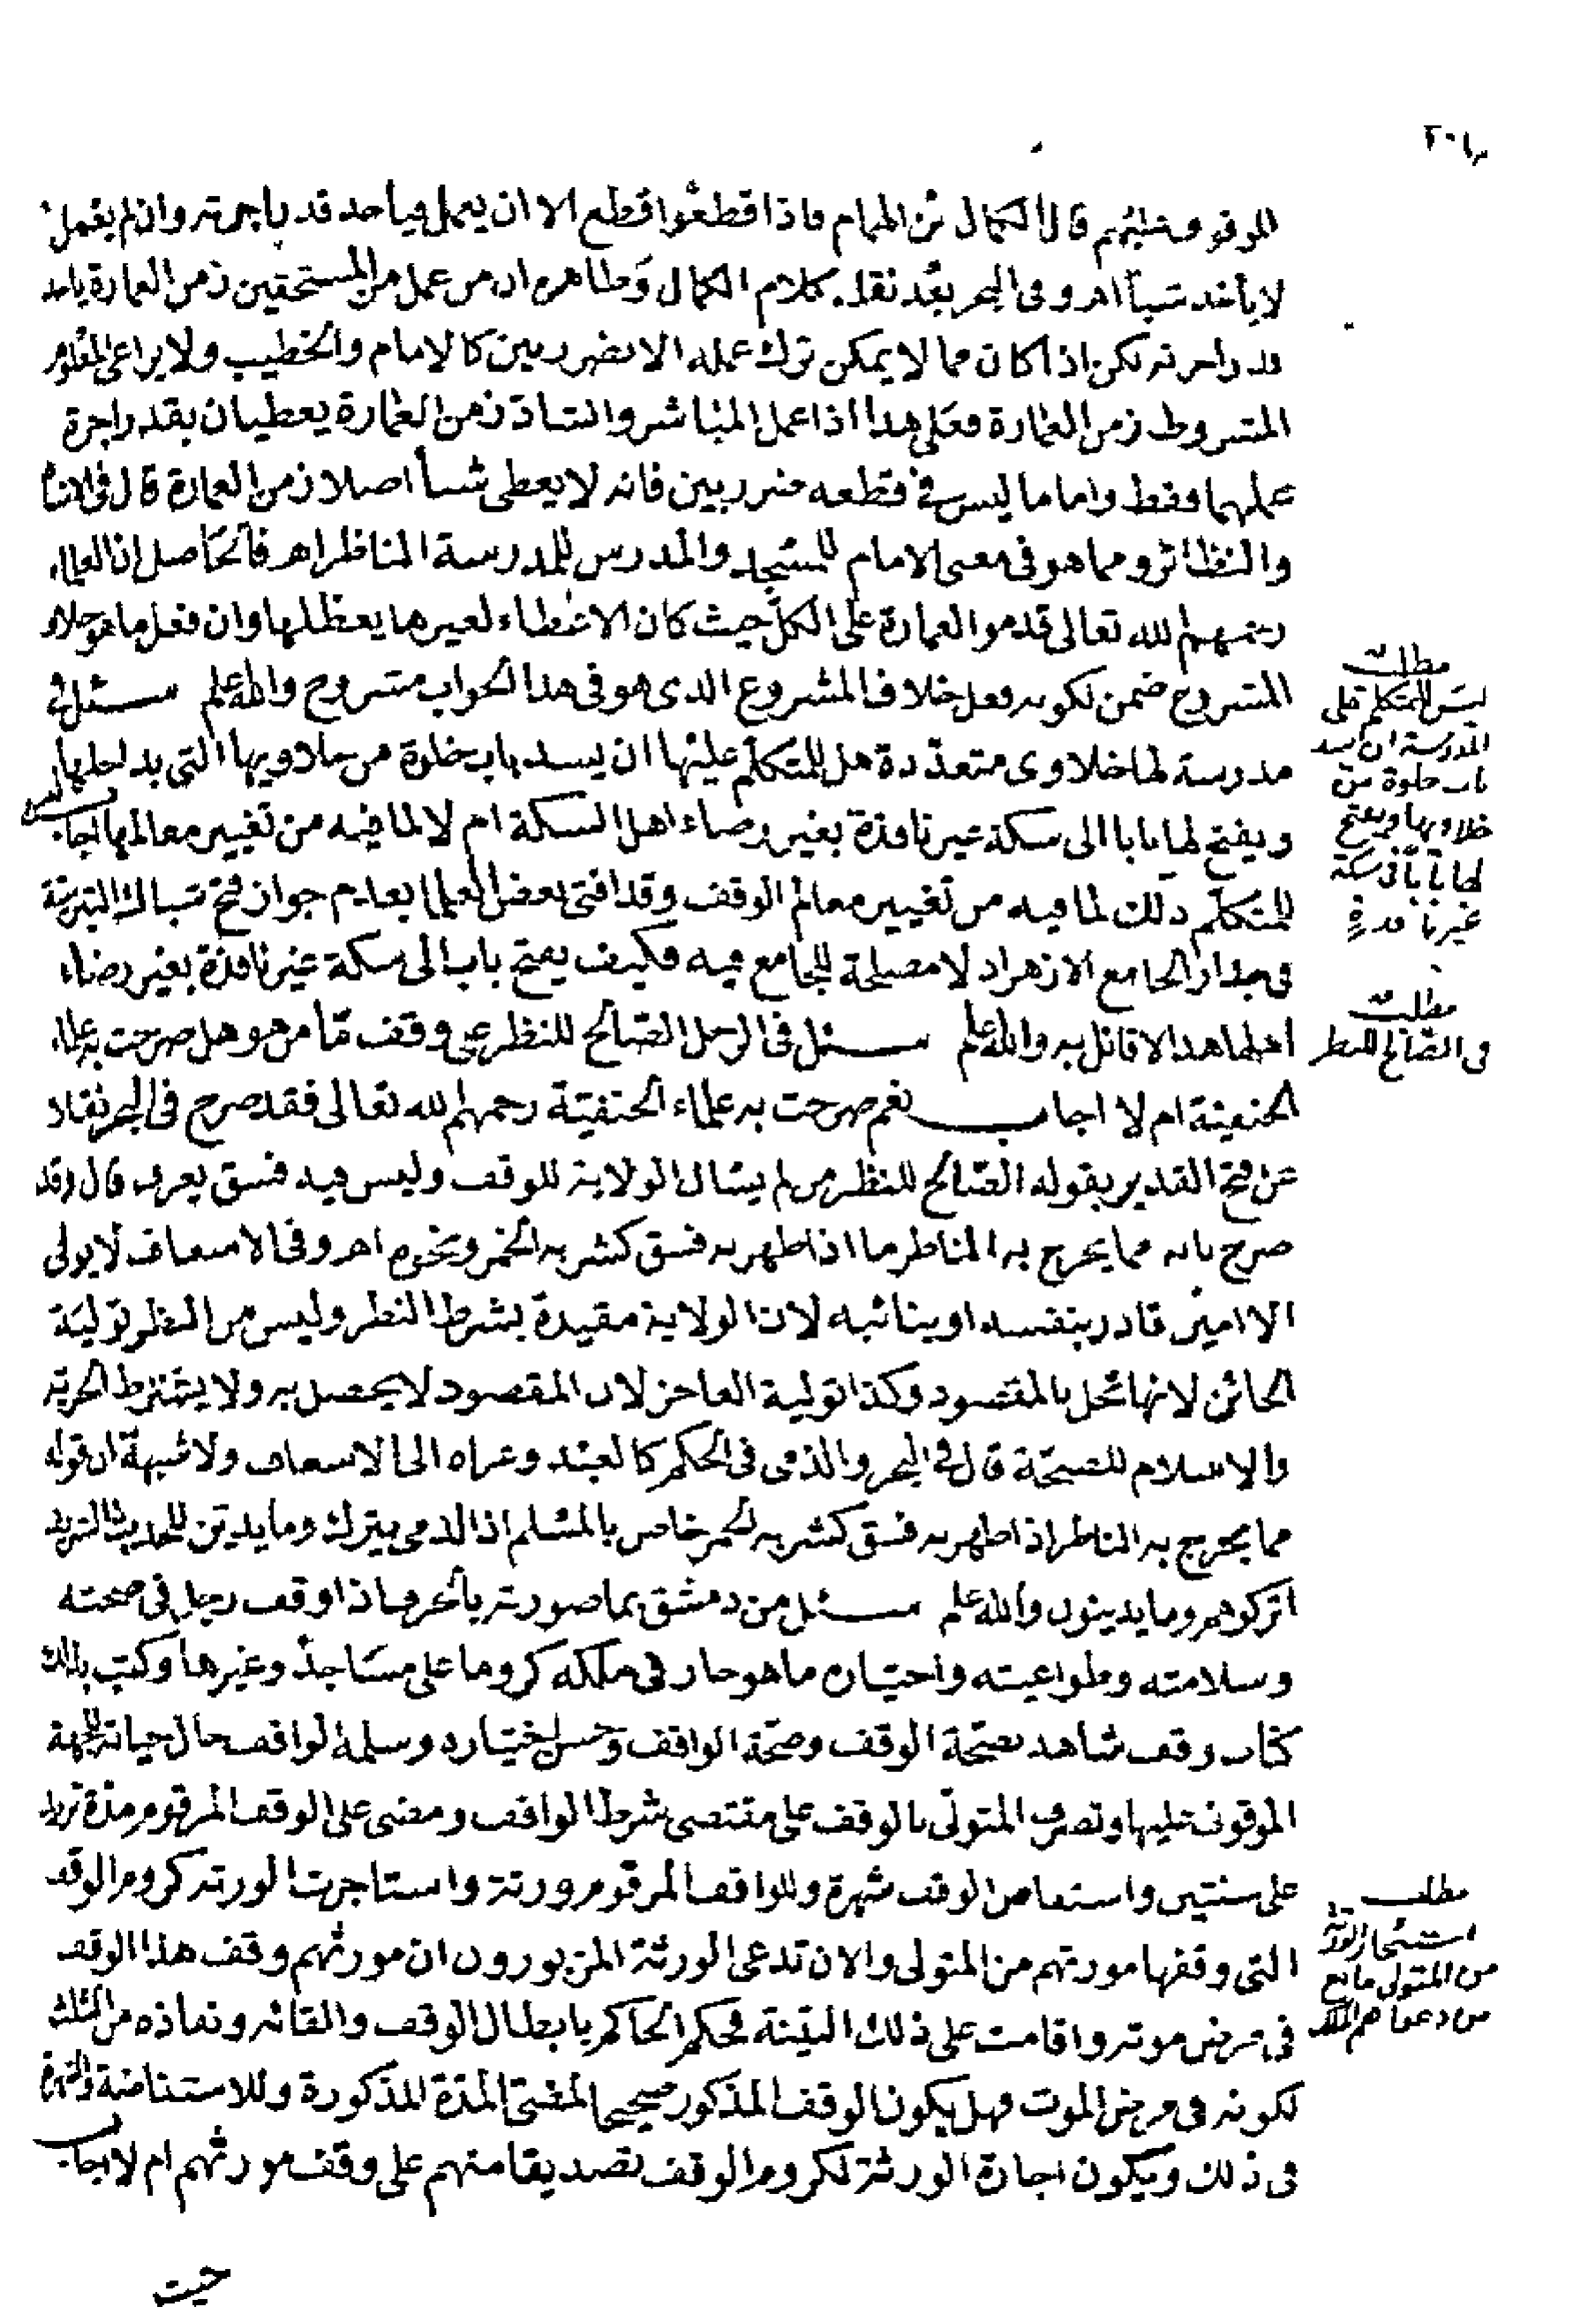 الموقوف عليهم قال الكمال بن الهمام فاذا قطعوا قطع الا ان يعمل فياخذ قدر اجرته وان لم يعمل
لا يأخذ شيأ اهـ وفي البحر بعد نقله كلام الكمال وظاهره ان من عمل من المستحقين زمن العمارة ياخذ
قدر اجرته لكن اذا كان مما لا يمكن ترك عمله الا بضرر بين كالامام والخطيب ولا يراعى المعلوم
المشروط زمن العمارة فعلى هذا اذا عمل المباشر والشاد زمن العمارة يعطيان بقدر اجرة
عملهما وفقط واما ما ليس في قطعه ضرر بين فانه لا يعطى شيأ اصلا زمن العمارة قال في الاشباه
والنظائر ومما هو في معنى الامام للمسجد والمدرس للمدرسة الناظر اهـ فالحاصل ان العلماء
رحمهم الله تعالى قدموا العمارة على الكل حيث كان الاعطاء لغيرها يعطلها وان فعل ما هو خلاف
المشروح ضمن لكونه فعل خلاف المشروع الذي هو في هذا الجواب مشروح والله اعلم سئل في
مدرسة لها خلاوى متعددة هل للمتكلم عليها ان يسد باب خلوة من خلاويها التي بداخلها
ويفتح لها بابا الى سكة غير نافذة بغير رضاء اهل السكة ام لا لما فيه من تغيير معالمها اجاب ليس
للمتكلم ذلك لما فيه من تغيير معالم الوقف وقد افتى بعض العلما بعدم جواز فتح شباك التربة
في جدار الجامع الازهر اذ لا مصلحة للجامع فيه فكيف يفتح باب الى سكة غير نافذة بغير رضاء
اهلها هذا لا قائل به والله اعلم سئل في الرجل الصالح للنظر على وقف ما من هو وهل صرحت به علماء
الحنفية ام لا اجاب نعم صرحت به علماء الحنفية رحمهم الله تعالى فقد صرح في البحر نقلا
عن فتح القدير بقوله الصالح للنظر من لم يسال الولاية للوقف وليس فيه فسق يعرف قال وقد
صرح بانه مما يخرج به الناظر ما اذا ظهر به فسق كشربه الخمر ونحوه اهـ وفي الاسعاف لا يولى
الا امين قادر بنفسه او بنائبه لان الولاية مقيدة بشرط النظر وليس من النظر تولية
الخائن لانها تخل بالمقصود وكذا تولية العاجز لان المقصود لا يحصل به ولا يشترط الحرية
والاسلام للصحة قال في البحر والذمى في الحكم كالعبد وعزاه الى الاسعاف ولا شبهة ان قوله
مما يخرج به الناظر اذا ظهر به فسق كشربه الخمر خاص بالمسلم اذ الذمى يترك وما يدين للحديث الشريف
اتركوهم وما يدينون والله اعلم سئل من دمشق بما صورته بأخرها اذا وقف رجل في صحته
وسلامته وطواعيته واختياره ما هو جار في ملكه كروما على مساجد وغيرها وكتب بذلك
كتاب وقف شاهد بصحة الوقف وصحة الواقف وحسن اختياره وسلمه الواقف حال حياته للجهة
الموقوف عليها وتصرف المتولى بالوقف على مقتضى شرط الواقف ومضى على الوقف المرقوم مدة تزيد
على سنتين واستفاض الوقف شهرة وللواقف المرقوم ورثة واستاجرت الورثة كروم الوقف
التي وقفها مورثهم من المتولى والان تدعى الورثة المزبورون ان مورثهم وقف هذا الوقف
في مرض موته واقامت على ذلك البينة فحكم الحاكم بابطال الوقف والقائه ونفاذه من الثلث
لكونه في مرض الموت فهل يكون الوقف المذكور صحيحا لمضى المدة المذكورة وللاستفاضة والشهرة
في ذلك ويكون اجارة الورثة لكروم الوقف تصديقا منهم على وقف مورثهم ام لا اجاب
حيث
مطلب
ليس للمتكلم على
المدرسة ان يسد
باب خلوة من
خلاويها ويفتح
لها بابا في سكة
غير نافدة
مطلب
في الصالح للنظر
مطلب
استئجار الورثة
من المتولى مانع
من دعواهم الملك